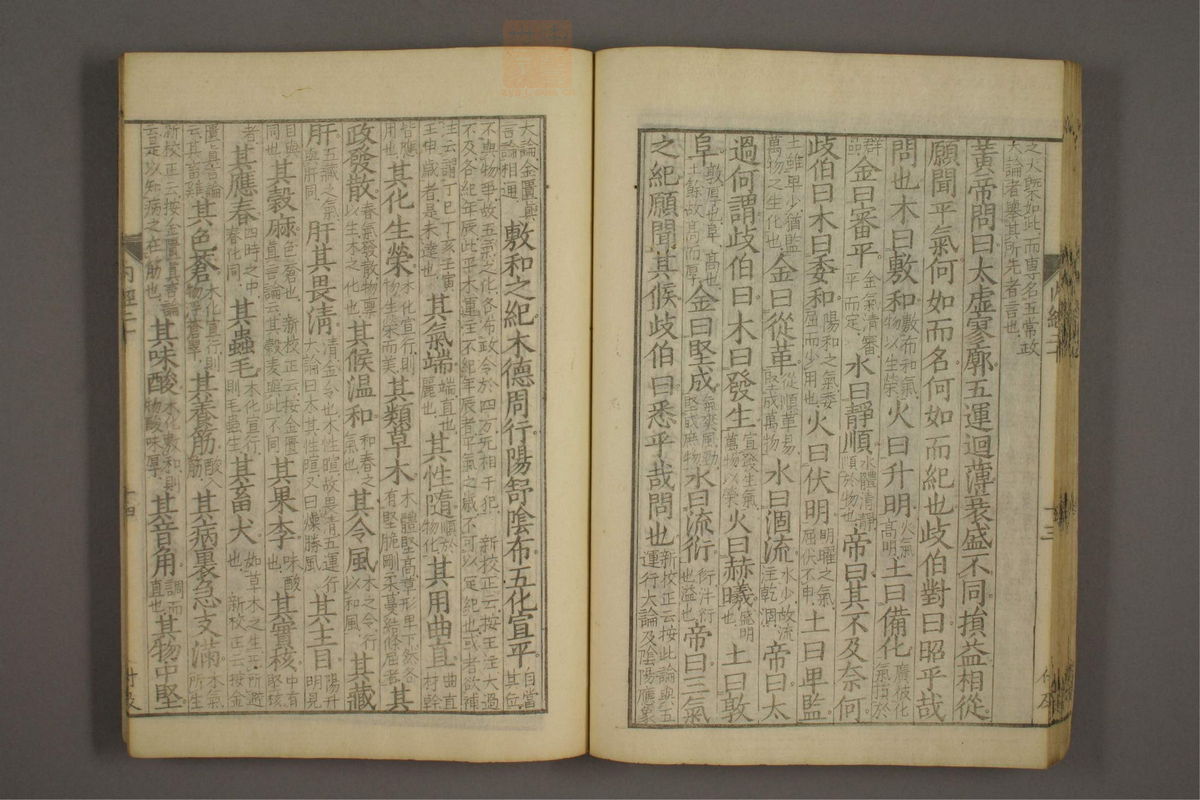 之大槩如此而專名五常政
大論者舉其所先者言也
黃帝問曰太虛寥廓五運迴薄衰盛不同損益相從
願聞平氣何如而名何如而紀也歧伯對曰昭乎哉
問也木曰敷和敷布和氣物以生榮火曰升明火氣高明土曰備化廣被化氣損於
群品金曰審平金氣清審平而定水曰靜順水體清靜順於物也帝曰其不及奈何
歧伯曰木曰委和陽和之氣委屈而少用也火曰伏明明曜之氣屈伏不申土曰卑監
土雖卑少猶監萬物之生化也金曰從革從順革易堅成萬物水曰涸流水少故流注乾涸帝曰太
過何謂歧伯曰木曰發生宣發生氣萬物以榮火曰赫曦盛明也土曰敦
阜敦厚也阜高也土餘故高而厚金曰堅成氣爽風勁堅成庶物水曰流衍衍泮衍也溢也帝曰三氣
之紀願聞其候歧伯曰悉乎哉問也新校正云按此論與五運行大論及陰陽應象
大論金匱真言論相通敷和之紀木德周行陽舒陰布五化宣平自當其位
不與物爭故五氣之化各布政令於四方无相干犯新校正云按王注太過
不及各紀年辰此平木運注不紀年辰者平氣之歲不可以定紀也或者欲補
注云謂丁巳丁亥壬寅壬申歲者是未達也其氣端端直也麗也其性隨順於物化其用曲直曲直材幹
皆應用也其化生榮木化宣行則物生榮而美其類草木木體堅高草形卑下然各有堅脆剛柔蔓結條屈者其
政發散春氣發散物稟以生木之化也其候溫和和春之氣也其令風木之令行以和風其藏
肝五藏之氣與肝同肝其畏清清金令也木性暄故畏清五運行大論曰木其性暄又曰燥勝風其主目陽升明見
目與同也其穀麻色蒼也新校正云按金匱真言論云其穀麥與此不同其果李味酸也其實核中有堅核
者其應春四時之中春化同其蟲毛木化宣行則毛蟲生其畜犬如草木之生无所避也新校正云按金
匱真言論云其畜雞其色蒼木化宣行則物浮蒼翠其養筋酸入筋其病裏急支滿木氣所生
新校正云按金匱真言論云是以知病之在筋也其味酸木化敷和則物酸味厚其音角調而直也其物中堅
內經二
十四
內經二
十三